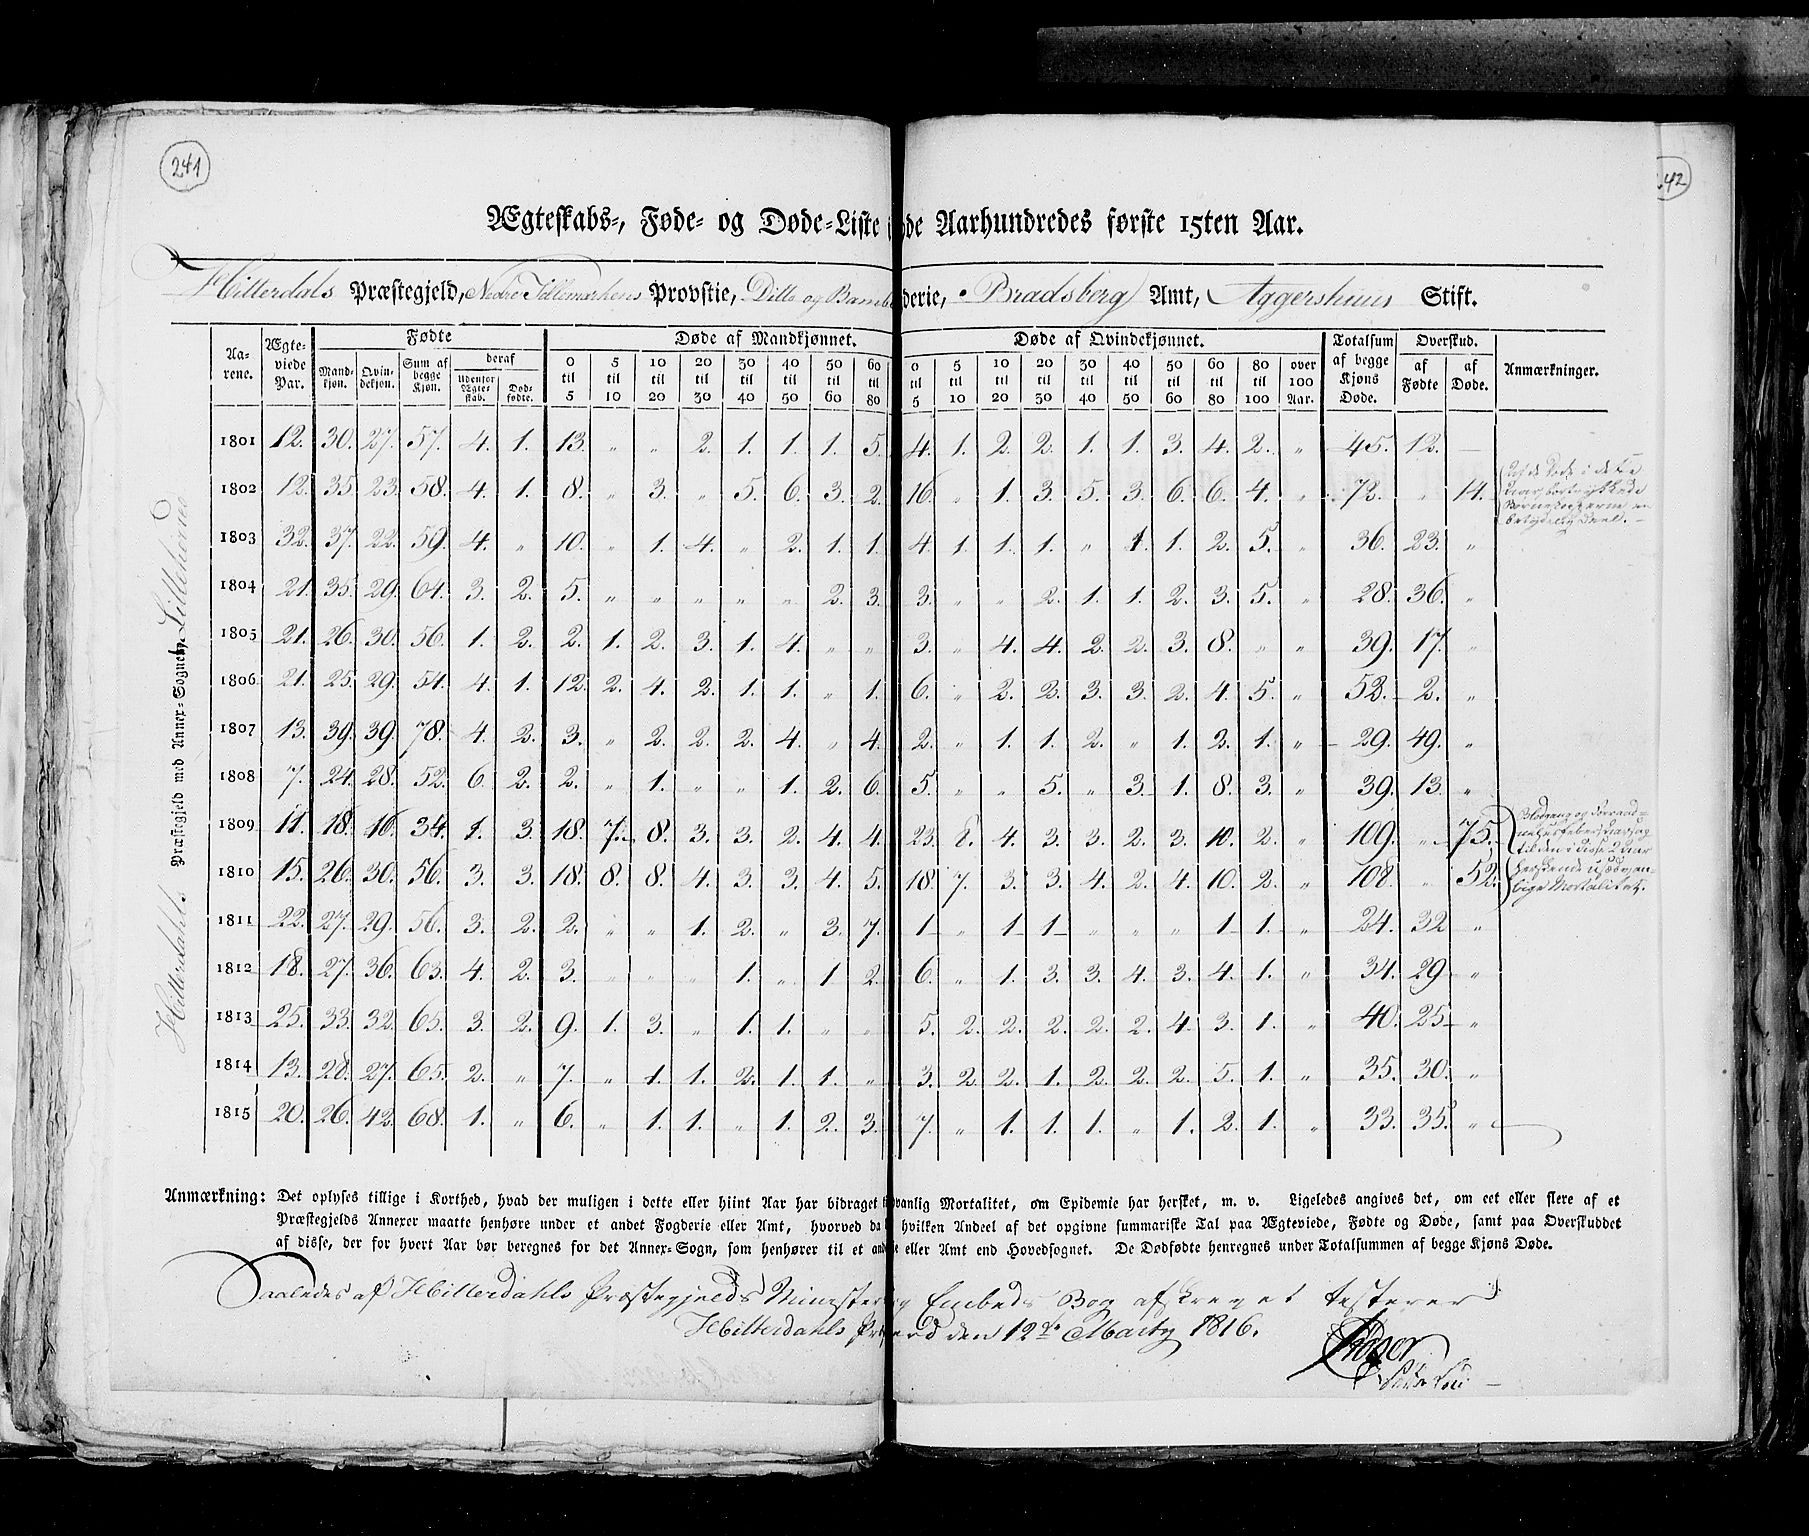 241
242
Ægteskabs-, Føde- og Døde-Liste de Aarhundredes første 15ten Aar.
Hitterdals Præstegjeld, Nedre Tellemarkens Provstie, Ditto og Bamb derie, Bradsberg Amt, Aggershuus Stift.
Hitterdahls Præstegjeld med Annex-Sognet Lilleherred
Aarene. Ægteviede Par. Fødte Døde af Mandkjønnet. Døde af Qvindekjønnet. Totalsum af begge Kjøns Døde. Overskud. Anmærkninger.
Mandkjøn. Qvindekjøn. Sum af begge Kjøn. deraf Udenfor Ægteskab. Dødfødte. 0 til 5 5 til 10 10 til 20 20 til 30 30 til 40 40 til 50 50 til 60 60 til 80 0 til 5 5 til 10 10 til 20 20 til 30 30 til 40 40 til 50 50 til 60 60 til 80 80 til 100 over 100 Aar. af Fødte af Døde.
1801 12. 30. 27. 57. 4. 1. 13. „ „ 2. 1. 1. 1. 5. 4. 1. 2. 2. 1. 1. 3. 4. 2. „ 45. 12. —
1802 12. 35. 23. 58. 4. 1. 8. „ 3. „ 5. 6. 3. 2. 16. „ 1. 3. 5. 3. 6. 6. 4. „ 72. „ 14.
1803 32. 37. 22. 59. 4. „ 10. „ 1. 4. „ 2. 1. 1. 4. 1. 1. 1. „ 1. 1. 2. 5. „ 36. 23. „
1804 21. 35. 29. 64. 3. 2. 5. „ „ „ „ „ 2. 3. 3. „ „ 2. 1. 1. 2. 3. 5. „ 28. 36. „
1805 21. 26. 30. 56. 1. 2. 2. 1. 2. 3. 1. 4. „ „ 3. „ 4. 4. 2. 2. 3. 8. „ „ 39. 17. „
1806 21. 25. 29. 54. 4. 1. 12. 2. 4. 2. 1. 1. „ 1. 6. „ 2. 2. 3. 3. 2. 4. 5. „ 52. 2. „
1807 13. 39. 39. 78. 4. 2. 3. „ 2. 2. 2. 4. „ 4. 2. „ 1. 1. 2. „ 1. 2. 1. „ 29. 49. „
1808 7. 24. 28. 52. 6. 2. 2. „ 1. „ „ 1. 2. 6. 5. „ „ 5. „ 3. 1. 8. 3. „ 39. 13. „
1809 11. 18. 16. 34. 1. 3. 18. 7. 8. 3. 3. 2. 4. 4. 23. 8. 4. 3. 3. 2. 3. 10. 2. „ 109. „ 75.
1810 15. 26. 30. 56. 3. 3. 18. 8. 8. 4. 3. 3. 4. 5. 18. 7. 3. 3. 4. 2. 4. 10. 2. „ 108. „ 52.
1811 22. 27. 29. 56. 3. 2. 2. „ „ 1. 2. „ 3. 7. 1 „ 1 1 „ „ „ 1 1. „ 24. 32 „
1812 18. 27. 36. 63. 4. 2. 3. „ „ „ 1. „ 1 2. 6. „ 1. 3. 3. 4. 3. 4. 1. „ 34. 29 „
1813 25. 33. 32. 65. 3. 2. 9. 1. 3. „ 1. 1. „ „ 5. 2. 2. 2. 2. 2. 4. 3. 1. „ 40. 25 „
1814 13. 28. 27. 65. 2. „ 7. „ 1. 1. 2. 1. 1. „ 3. 2. 2. 1. 2. 2. 2. 5. 1. „ 35. 30. „
1815 20. 26. 42. 68. 1. „ 6. „ 1. 1. „ 1. 2. 3. 7. „ 1. 1. 1. „ 1. 2. 1. „ 33. 35. „
Børnekopperne en
betydelig Deel.
Blodgang og Forraad-
nelsesfeber
til den i disse 2 Aar
herskende usædvan-
lige Mortalitet.
Anmærkning: Det oplyses tillige i Korthed, hvad der muligen i dette eller hiint Aar har bidraget vanlig Mortalitet, om Epidemie har hersket, m. v. Ligeledes angives det, om eet eller flere af et
Præstegjelds Annexer maatte henhøre under et andet Fogderie eller Amt, hvorved da hvilken Andeel af det opgivne summariske Tal paa Ægteviede, Fødte og Døde, samt paa Overskuddet
af disse, der for hvert Aar bør beregnes for det Annex-Sogn, som henhører til et and eller Amt end Hovedsognet. De Dødfødte henregnes under Totalsummen af begge Kjøns Døde.
Saaledes af Hitterdahls Præstegjelds Minister Embeds Bog afskrevet testerer
Hitterdahls Præ den 12te Martij 1816.